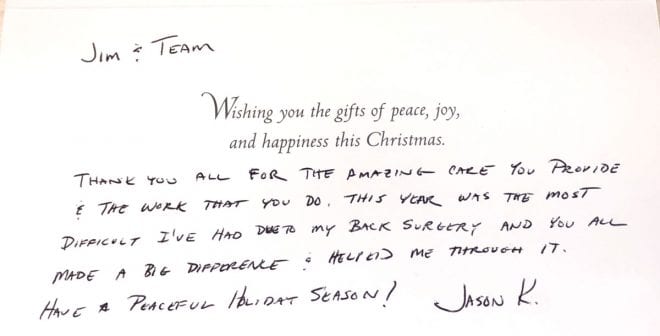 Jim & Team
Wishing you the gifts of peace, joy,
and happiness this Christmas.
THANK YOU ALL FOR THE AMAZING CARE YOU PROVIDE
& THE WORK THAT YOU DO. THIS YEAR WAS THE MOST
DIFFICULT I'VE HAD DUE TO MY BACK SURGERY AND YOU ALL
MADE A BIG DIFFERENCE & HELPED ME THROUGH IT.
HAVE A PEACEFUL HOLIDAY SEASON! JASON K.